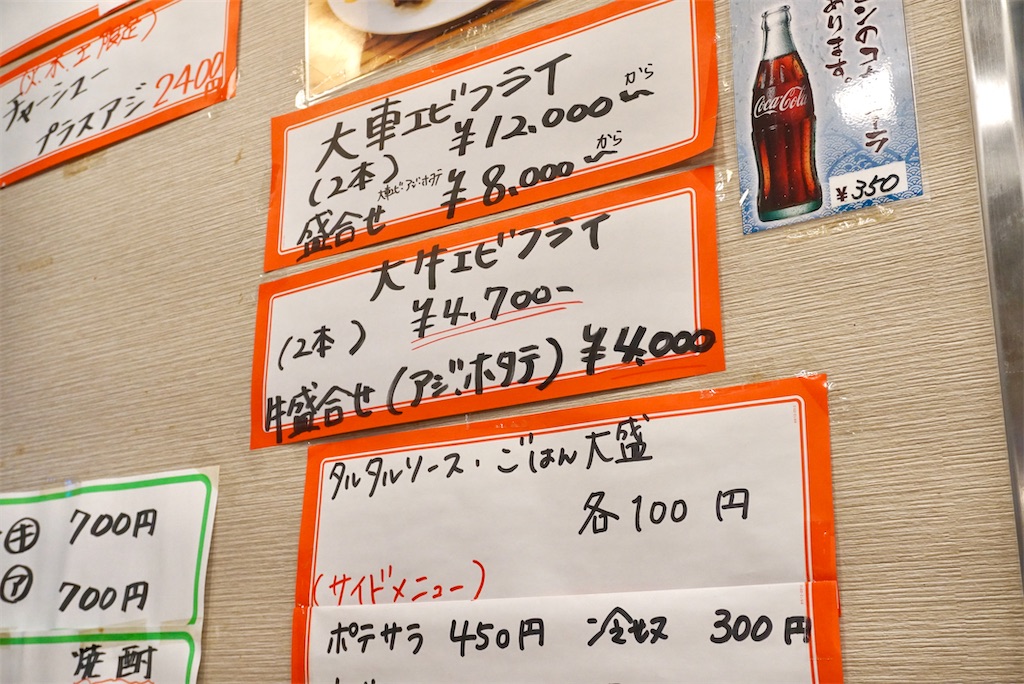 火.水.土限定)
チャーシュー
プラスアジ 2400円
大車エビフライ
(2本) ¥12.000~から
大車エビ・アジ・ホタテ
盛合せ ¥8.000~から
大牛エビフライ
(2本) ¥4.700-
牛盛合せ(アジ、ホタテ) ¥4.000
ンのコ ーラ
あります。
Coca-Cola
¥350
タルタルソース・ごはん大盛
各100円
(サイドメニュー)
ポテサラ 450円 冷奴 300円
㋖ 700円
㋐ 700円
焼酎